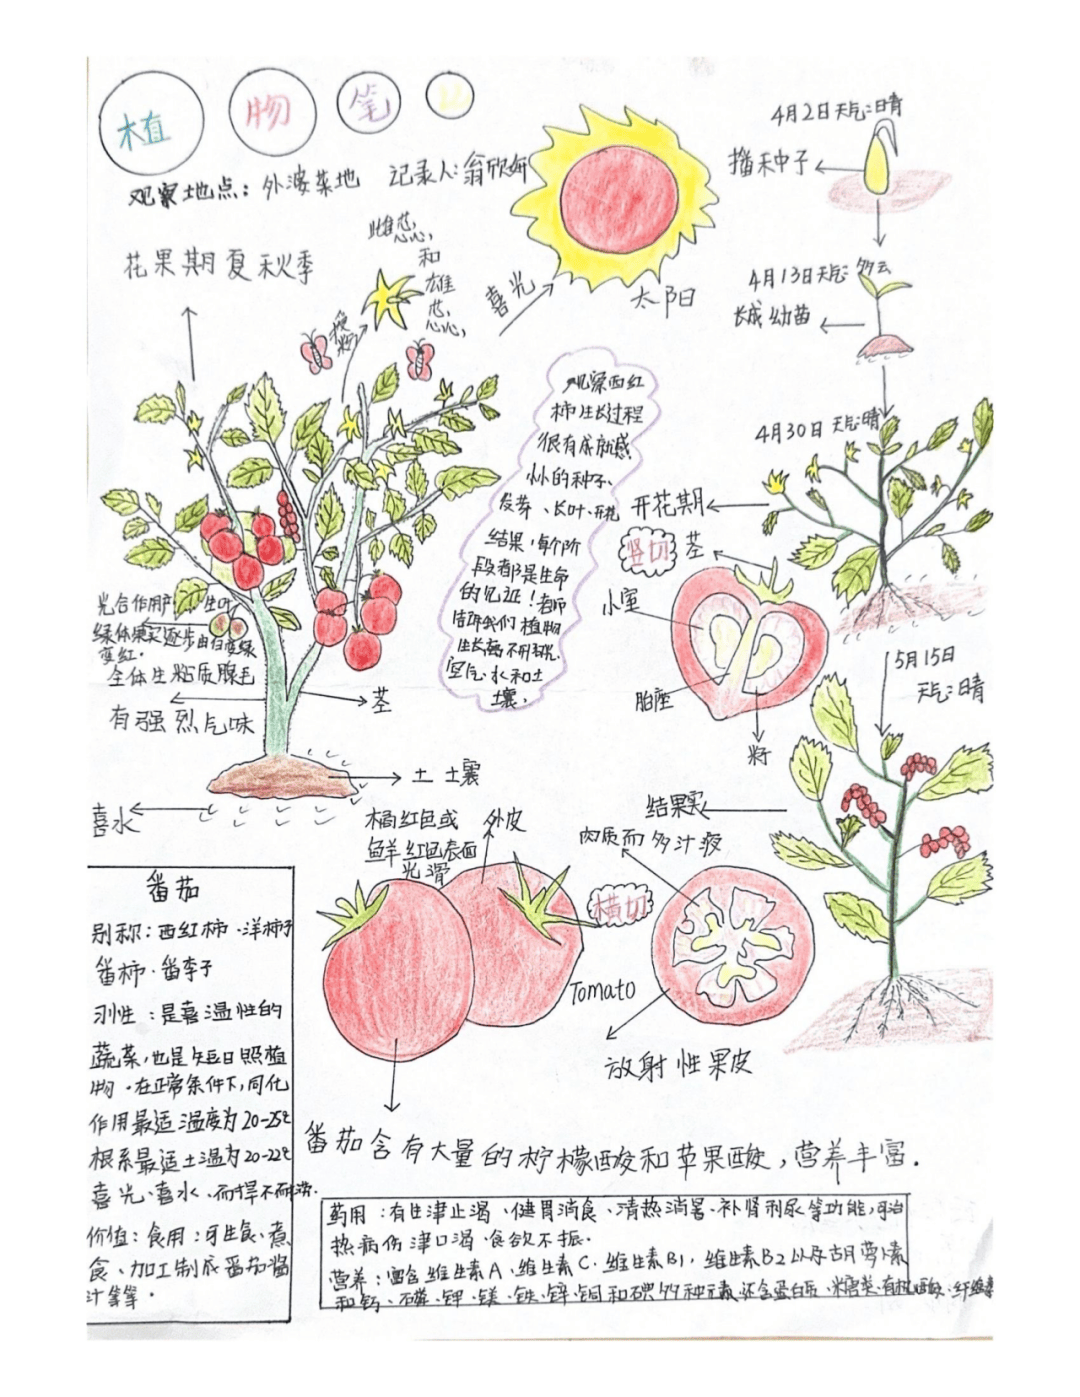 植物笔记
观察地点：外婆菜地 记录人：翁欣妍
花果期夏秋季
雌蕊
和
雄
蕊
授
粉
喜光
太阳
4月2日天气：晴
播种子
4月13日天气：多云
长成幼苗
4月30日 天气：晴
开花期
5月15日
天气：晴
结果实
观察西红
柿生长过程
很有成就感
小小的种子、
发芽、长叶、开花
结果，每个阶
段都是生命
的见证！老师
告诉我们植物
生长离不开阳光、
空气、水和土
壤。
竖切
茎
小室
胎座
籽
光合作用产生叶
绿体果实逐步由白变绿
变红。
全体生粘质腺毛
有强烈气味
茎
土 土壤
喜水
橘红色或
鲜红色表面
光滑
外皮
肉质而多汁液
横切
Tomato
放射性果皮
番茄
别称：西红柿·洋柿子
番柿·番李子
习性：是喜温性的
蔬菜，也是短日照植
物。在正常条件下，同化
作用最适温度为20-25℃
根系最适土温为20-22℃
喜光、喜水、耐旱不耐涝.
价值：食用：可生食、煮
食、加工制成番茄酱
汁等等。
番茄含有大量的柠檬酸和苹果酸，营养丰富.
药用：有生津止渴、健胃消食、清热消暑、补肾利尿等功能，可治
热病伤津口渴、食欲不振.
营养：富含维生素A、维生素C、维生素B1，维生素B2以及胡萝卜素
和钙、磷、钾、镁、铁、锌、铜和碘多种元素，还含蛋白质、糖类、有机酸、纤维素